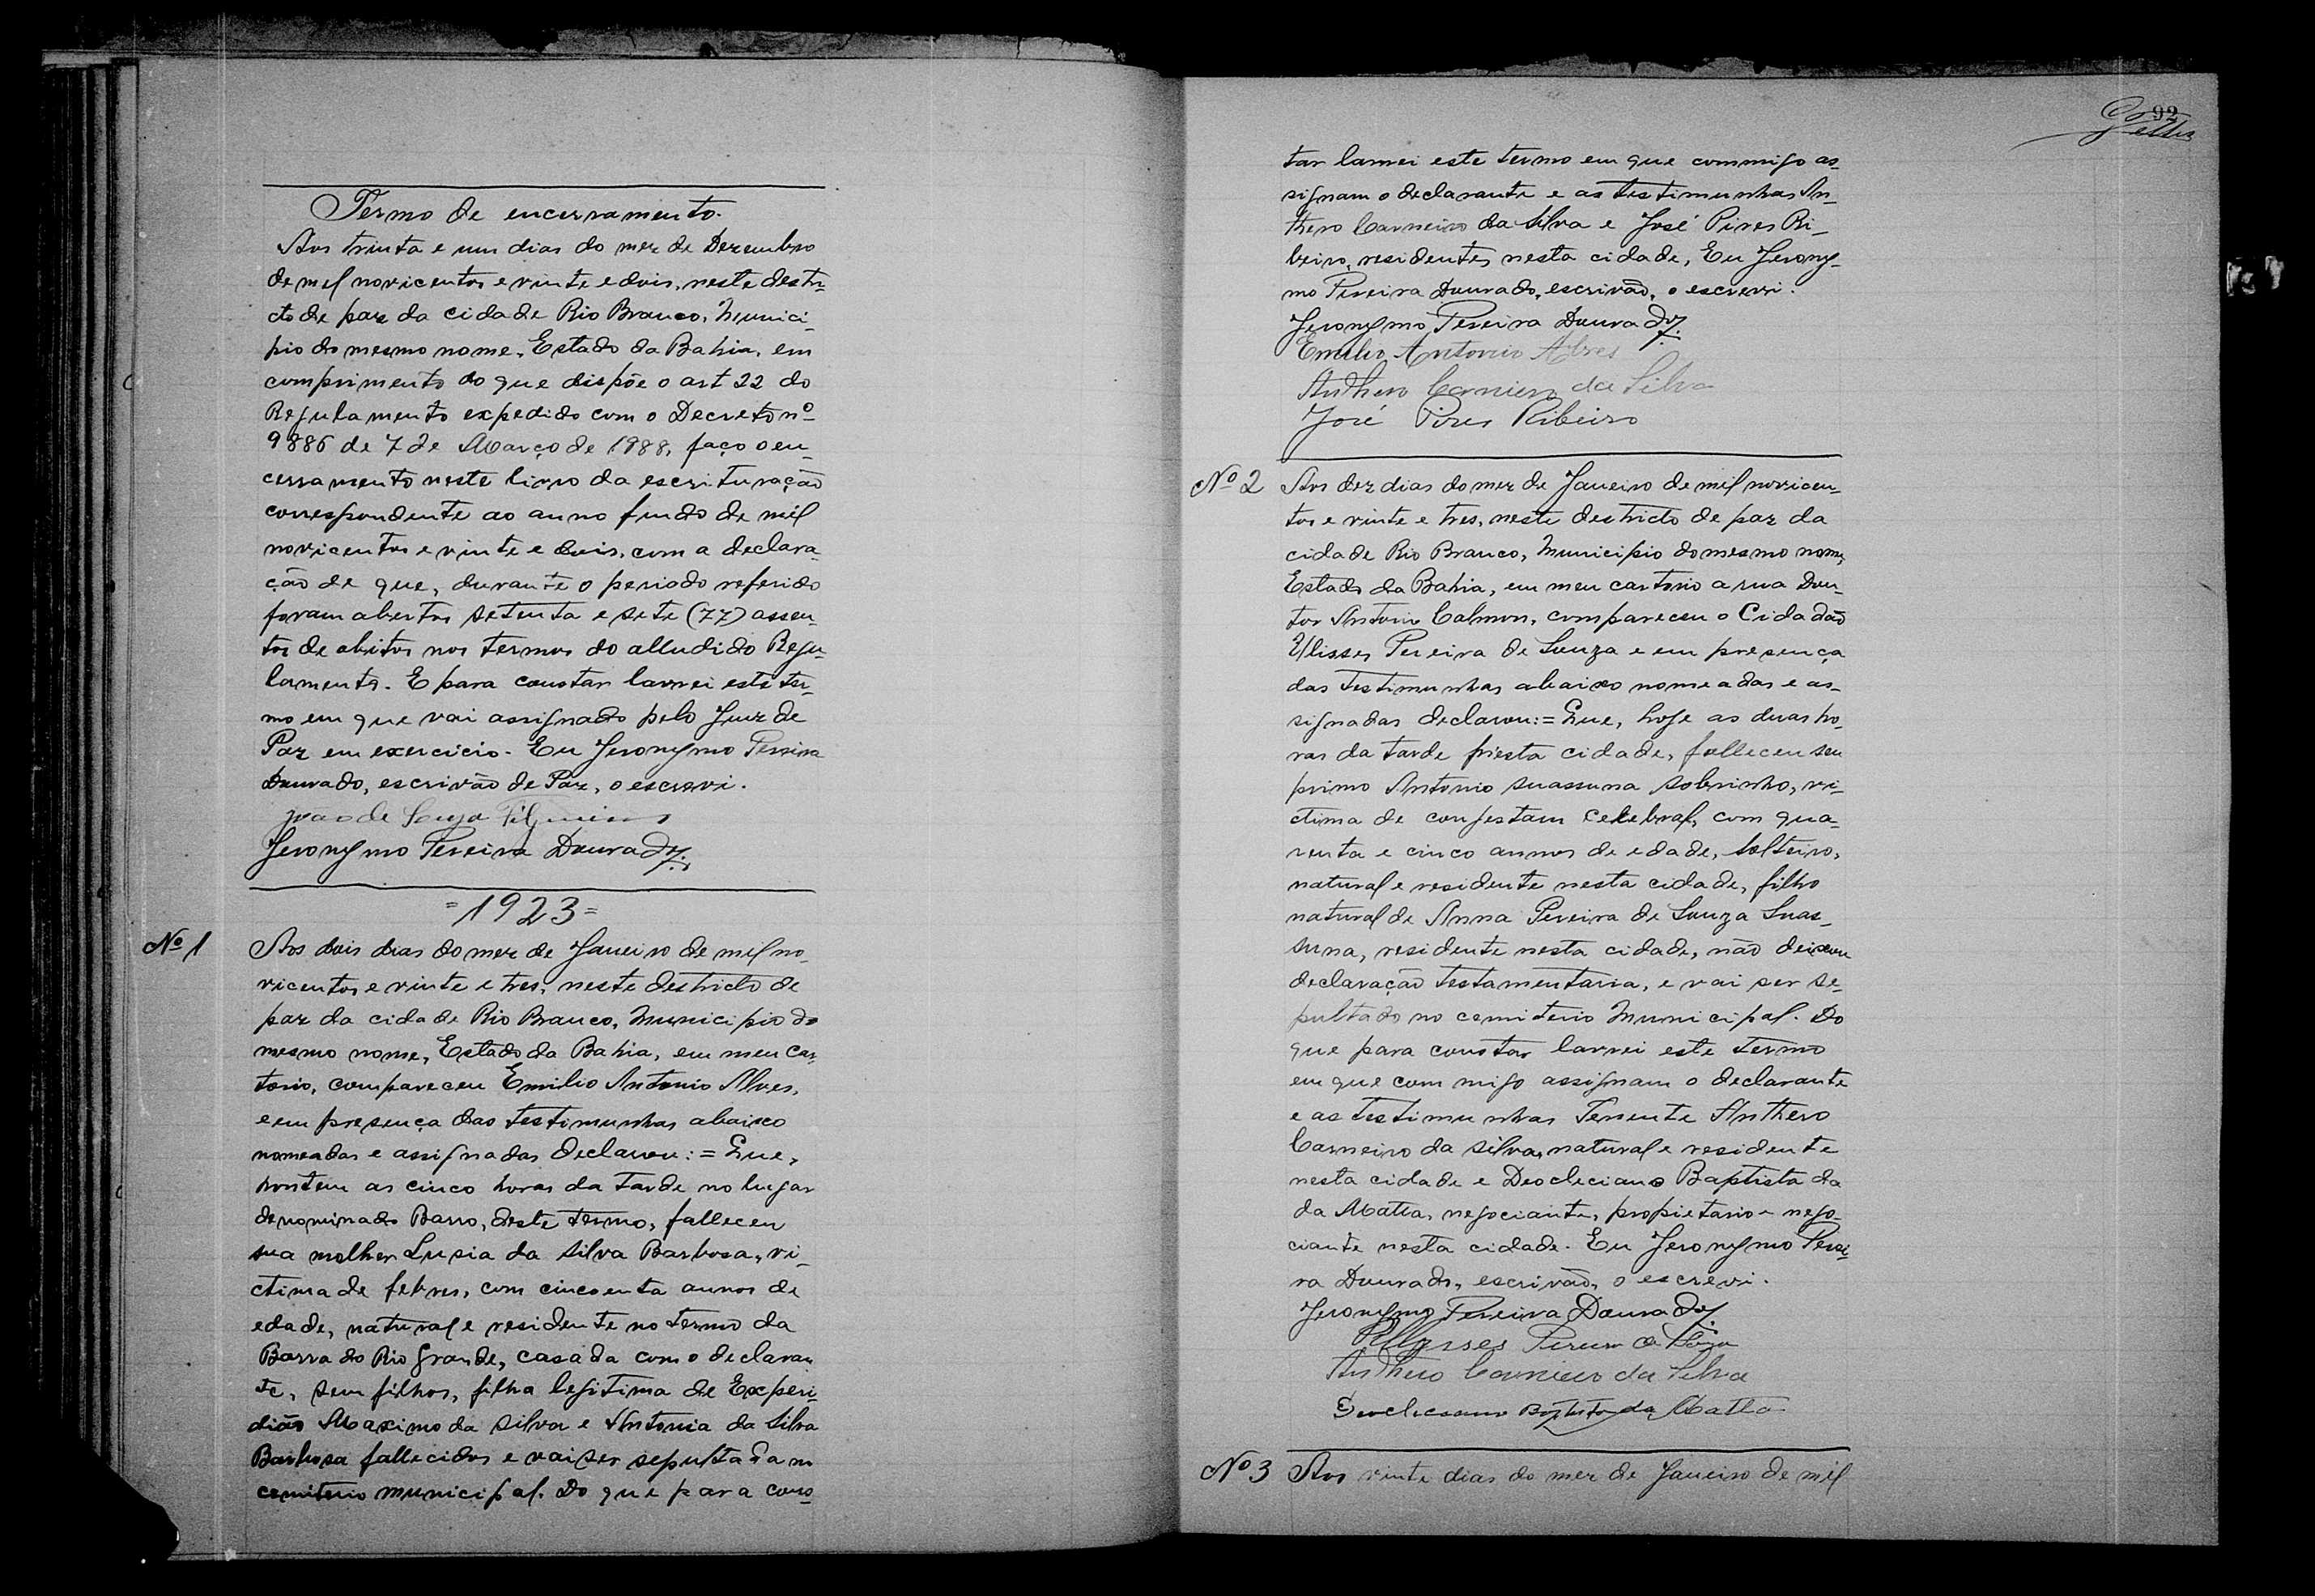 Termo de encerramento.
Aos trinta e um dias do mez de Dezembro
de mil novicentos e vinte e dois, neste destri-
cto de paz da cidade Rio Branco, Munici-
pio do mesmo nome, Estado da Bahia, em
comprimento do que dispõe o art 22 do
Regulamento expedido com o Decreto nº
9886 de 7 de Março de 1988, faço o en-
cerramento neste livro da escrituração
correspondente ao anno findo de mil
novicentos e vinte e dois, com a declara-
ção de que, durante o periodo referido
foram abertos setenta e sete (77) assen-
tos de obitos nos termos do alludido Regu-
lamento. E para constar lavrei este ter-
mo em que vai assignado pelo Juiz de
Paz em exercicio. Eu Jeronymo Pereira
Dourado, escrivão de Paz, o escrevi.
João de Souza
Jeronymo Pereira Dourado.
=1923=
Nº 1 Aos dois dias do mez de Janeiro de mil no-
vicentos e vinte e tres, neste destricto de
paz da cidade Rio Branco, Municipio do
mesmo nome, Estado da Bahia, em meu car-
torio, compareceu Emilio Antonio Alves,
e em presença das testimunhas abaixo
nomeadas e assignadas declarou: = Que,
hontem as cinco horas da tarde no lugar
denominado Barro, deste termo, falleceu
sua molher Lusia da Silva Barbosa, vi-
ctima de febres, com cincoenta annos de
edade, natural e residente no termo da
Barra do Rio Grande, casada com o declaran
te, sem filhos, filha legitima de Experi
dião Maximo da Silva e Antonia da Silva
Barbosa fallecidos e vai ser sepultada no
cemiterio municipal. Do que para cons-
92
tar lavrei este termo em que commigo as-
signam o declarante e as testimunhas An-
thero Carneiro da Silva e José Pires Ri-
beiro, residentes nesta cidade, Eu Jerony-
mo Pereira Dourado, escrivão, o escrevi.
Jeronymo Pereira Dourado.
Emilio Antonio Alves
Anthero Carneiro da Silva
José Pires Ribeiro
Nº 2 Aos dez dias do mez de Janeiro de mil novicen-
tos e vinte e tres, neste destricto de paz da
cidade Rio Branco, Municipio do mesmo nome,
Estado da Bahia, em meu cartorio a rua Dou-
tor Antonio Calmon, compareceu o Cidadão
Ulisses Pereira de Souza e em presença
das testimunhas abaixo nomeadas e as-
signadas declarou: = Que, hoje as duas ho-
ras da tarde nesta cidade, falleceu seu
primo Antonio Suassuna Sobrinho, vi-
ctima de congestam celebral, com qua-
renta e cinco annos de edade, solteiro,
natural e residente nesta cidade, filho
natural de Anna Pereira de Souza Suas-
suna, residente nesta cidade, não deixou
declaração testamentaria, e vai ser se-
pultado no cemiterio Municipal. Do
que para constar lavrei este termo
em que commigo assignam o declarante
e as testimunhas Tenente Anthero
Carneiro da Silva, natural e residente
nesta cidade e Deocleciano Baptista da
da Matta, negociante, propietario e nego-
ciante nesta cidade. Eu Jeronymo Perei-
ra Dourado, escrivão, o escrevi.
Jeronymo Pereira Dourado.
Ullysses Pereira de Souza
Anthero Carneiro da Silva
Deocleciano Baptista da Matta
Nº 3 Aos vinte dias do mez de Janeiro de mil